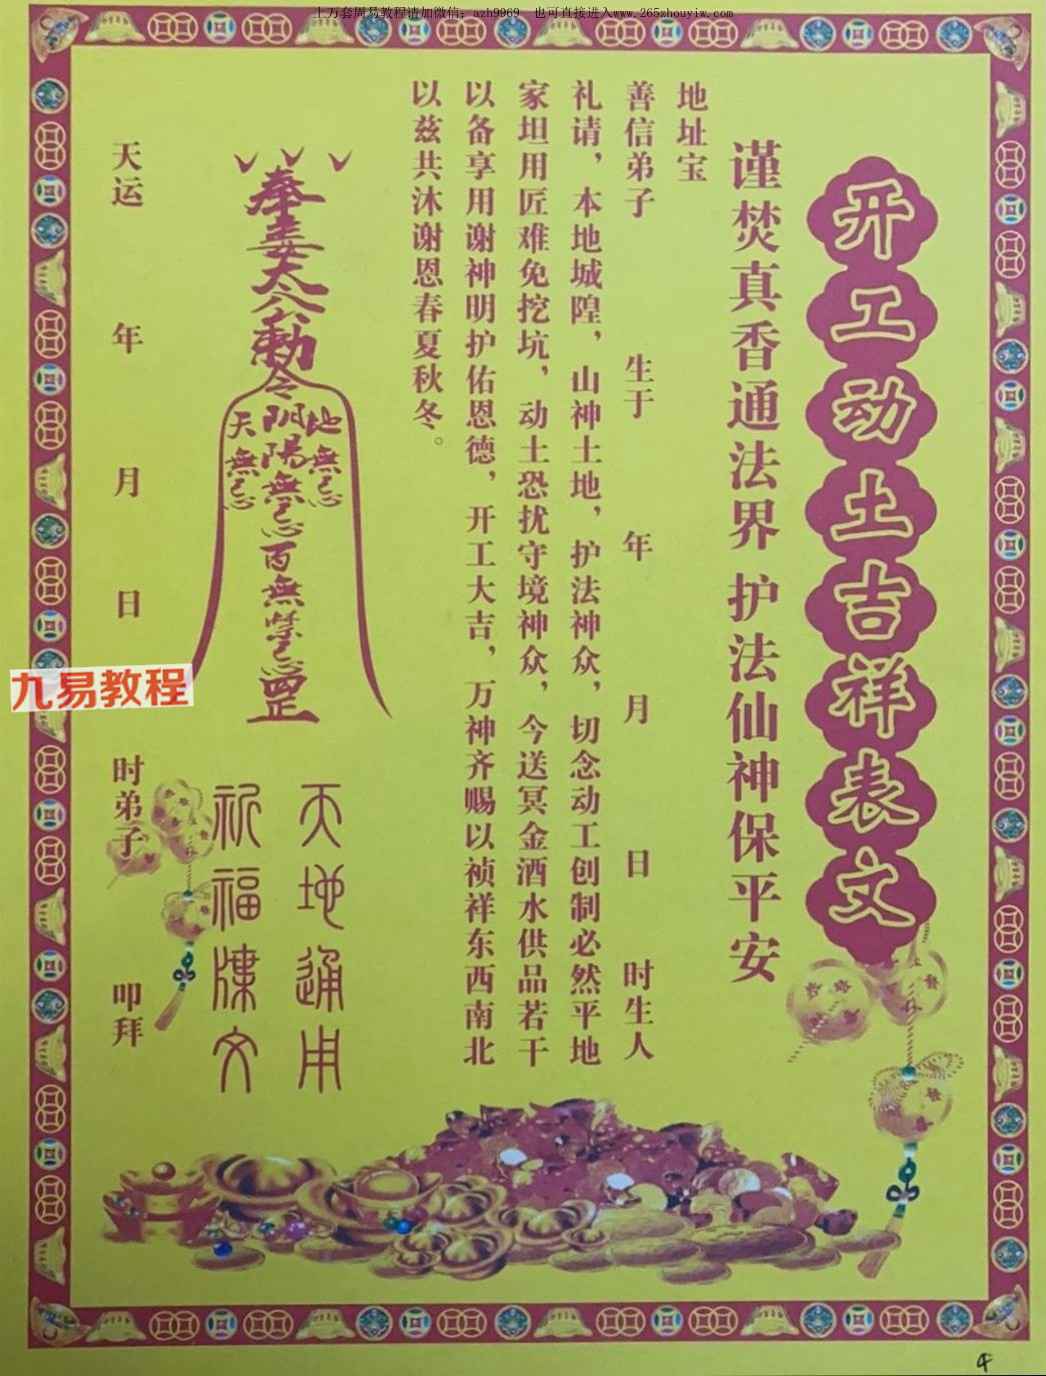 上万套周易教程请加微信：azh9969　也可直接进入www.265zhouyiw.com
开工动土吉祥表文
谨焚真香通法界 护法仙神保平安
地址宝
善信弟子 生于 年 月 日 时生人
礼请，本地城隍，山神土地，护法神众，切念动工创制必然平地
家坦用匠难免挖坑，动土恐扰守境神众，今送冥金酒水供品若干
以备享用谢神明护佑恩德，开工大吉，万神齐赐以祯祥东西南北
以兹共沐谢恩春夏秋冬。
奉姜太公勅令
地無忌
阴陽無忌百無禁忌罡
天無忌
天地通用
祈福牒文
天运 年 月 日 时弟子 叩拜
九易教程